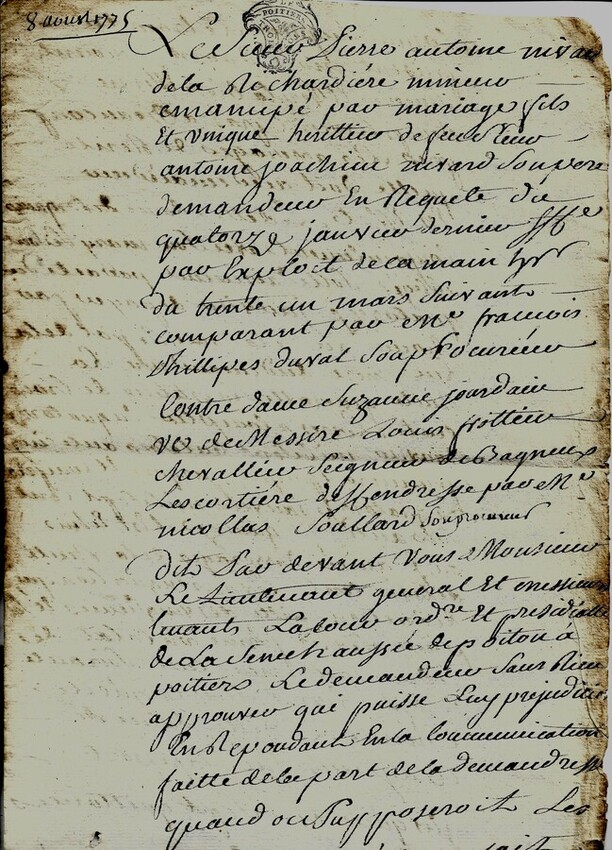 8 aoust 1775
POITIERS
Le Sieur Pierre antoine nivar
de la Richardiére mineur
emancipé par mariage fils
Et unique heritier de feu Sieur
antoine joachim nivard Son pere
demandeur En Requete du
quatorze janvier dernier
par Exploit de la main
du trente un mars Suivant
comparant par Me francois
Phillipes duval Son Procureur
Contre dame Suzanne jourdain
ve de Messire Louis frottier
chevallier Seigneur de Bagneux
Lescortiére deffendresse par Me
nicollas Soullard Son procureur
dit Par devant Vous Monsieur
Le Lieutenant general Et messieurs
tenants La cour ordre Et presidialle
de La Senechaussée de poitou à
poitiers Le demandeur Sans Rien
approuver qui puisse Luy prejudicier
En Repondant En la Communication
faitte de la part de la demandresse
quand on Supposeroit Les